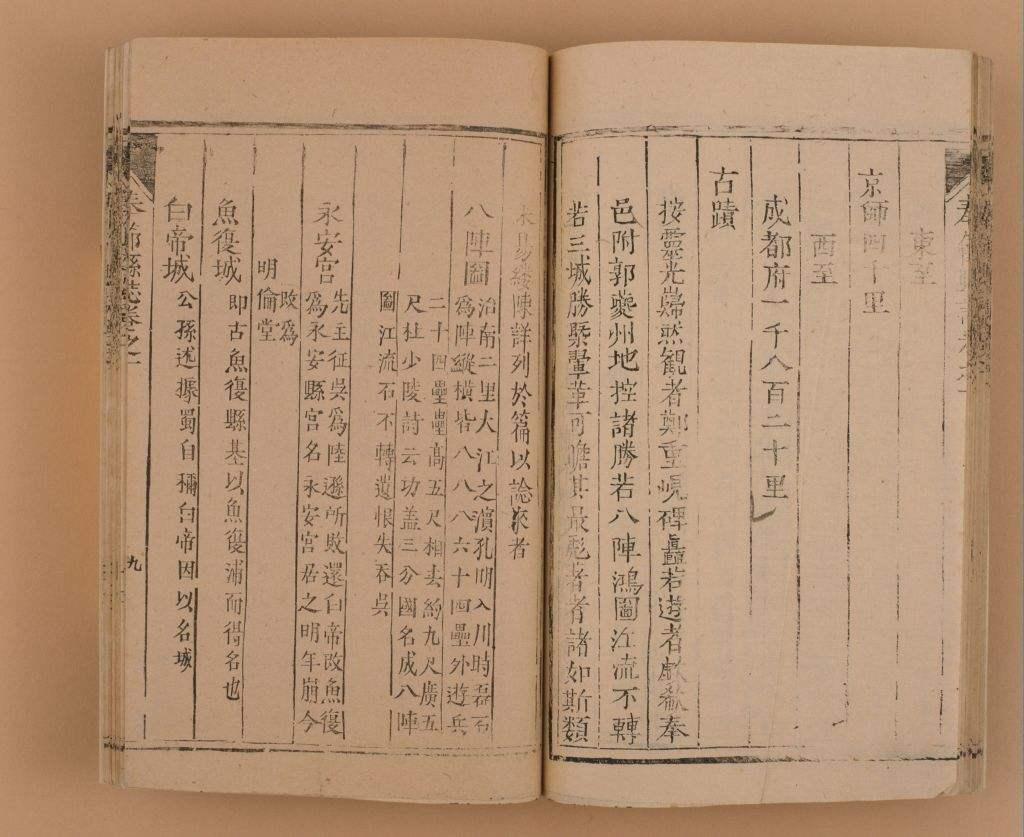 東至
京師四千里
西至
成都府一千八百二十里
古蹟
按靈光巋然觀者鄭重峴碑矗若遊者歔欷奉
邑附郭夔州地控諸勝若八陣鴻圖江流不轉
若三城勝槩翬革可瞻其最彪者者諸如斯類
未易縷陳詳列於篇以諗來者
八陣圖 治南二里大江之濵孔明入川時磊石
爲陣縱橫皆八八八六十四壘外遊兵
二十四壘壘高五尺相去約九尺廣五
尺杜少陵詩云功盖三分國名成八陣
圖江流石不轉遺恨失吞吳
永安宮 先主征吳爲陸遜所敗還白帝改魚復
爲永安縣宮名永安宮居之明年崩今
改爲
明倫堂
魚復城 即古魚復縣基以魚復浦而得名也
白帝城 公孫述據蜀自稱白帝因以名城
奉節縣誌卷之一
九